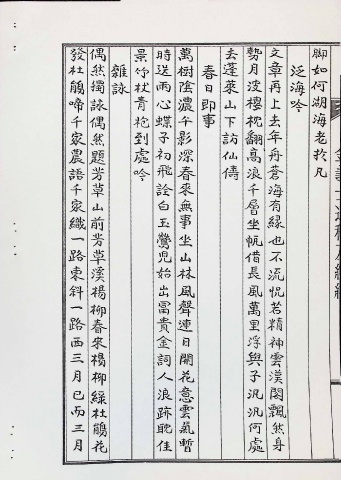 脚如何湖海老於凡
泛海吟
文章再上去年舟蒼海有緣也不流怳若精神雲漢闊飄然身
勢月波樓枕翻高浪千層坐帆借長風萬里浮與子汎汎何處
去蓬萊山下訪仙儔
春日即事
萬樹陰濃午影深春來無事坐山林風聲連日開花意雲氣暫
時送雨心蝶子初飛詮白玉鶯児始出冨貴金詞人浪跡耽佳
景竹杖青袍到處吟
雜詠
偶然獨詠偶然題芳草山前芳草溪楊柳春來楊柳綠杜鵑花
發杜鵑啼千家農語千家織一路東斜一路西三月已而三月